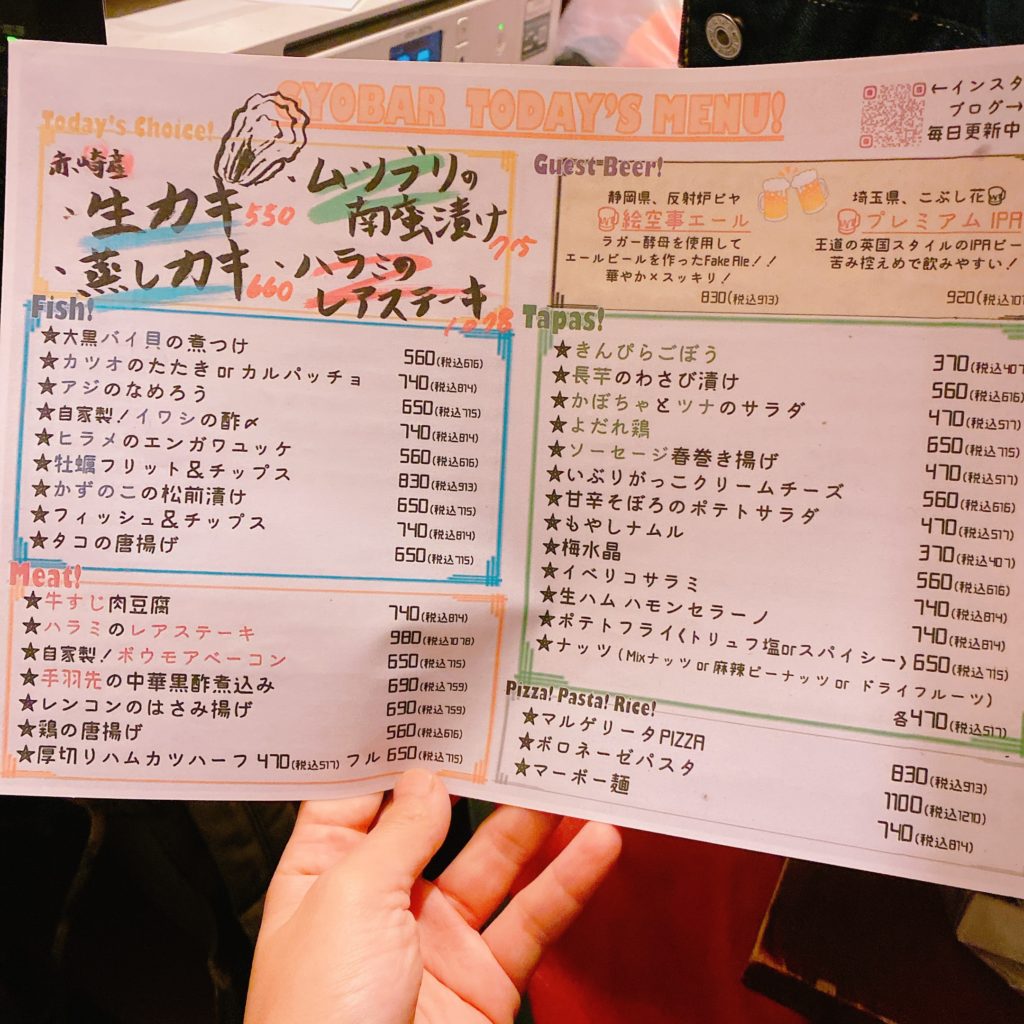 GYOBAR TODAY'S MENU!
←インスタ
ブログ→
毎日更新中
Today's Choice!
赤崎産
生カキ 550
蒸しカキ 660
ムツブリの
南蛮漬け 715
ハラミの
レアステーキ 1078
Guest Beer!
静岡県、反射炉ビヤ
絵空事エール
ラガー酵母を使用して
エールビールを作ったFake Ale!!
華やか×スッキリ!
830(税込913)
埼玉県、こぶし花
プレミアム IPA
王道の英国スタイルのIPAビー
苦み控えめで飲みやすい!
920(税込101
Fish!
★大黒バイ貝の煮つけ 560(税込616)
★カツオのたたき or カルパッチョ 740(税込814)
★アジのなめろう 650(税込715)
★自家製!イワシの酢〆 740(税込814)
★ヒラメのエンガワユッケ 560(税込616)
★牡蠣フリット&チップス 830(税込913)
★かずのこの松前漬け 650(税込715)
★フィッシュ&チップス 740(税込814)
★タコの唐揚げ 650(税込715)
Meat!
★牛すじ肉豆腐 740(税込814)
★ハラミのレアステーキ 980(税込1078)
★自家製!ボウモアベーコン 650(税込715)
★手羽先の中華黒酢煮込み 690(税込759)
★レンコンのはさみ揚げ 690(税込759)
★鶏の唐揚げ 560(税込616)
★厚切りハムカツハーフ 470(税込517) フル 650(税込715)
Tapas!
★きんぴらごぼう 370(税込407
★長芋のわさび漬け 560(税込616)
★かぼちゃとツナのサラダ 470(税込517)
★よだれ鶏 650(税込715)
★ソーセージ春巻き揚げ 470(税込517)
★いぶりがっこクリームチーズ 560(税込616)
★甘辛そぼろのポテトサラダ 470(税込517)
★もやしナムル 370(税込407)
★梅水晶 560(税込616)
★イベリコサラミ 740(税込814)
★生ハム ハモンセラーノ 740(税込814)
★ポテトフライ(トリュフ塩orスパイシー) 650(税込715)
★ナッツ(Mixナッツ or 麻辣ピーナッツ or ドライフルーツ)
各470(税込517)
Pizza! Pasta! Rice!
★マルゲリータPIZZA 830(税込913)
★ボロネーゼパスタ 1100(税込1210)
★マーボー麺 740(税込814)